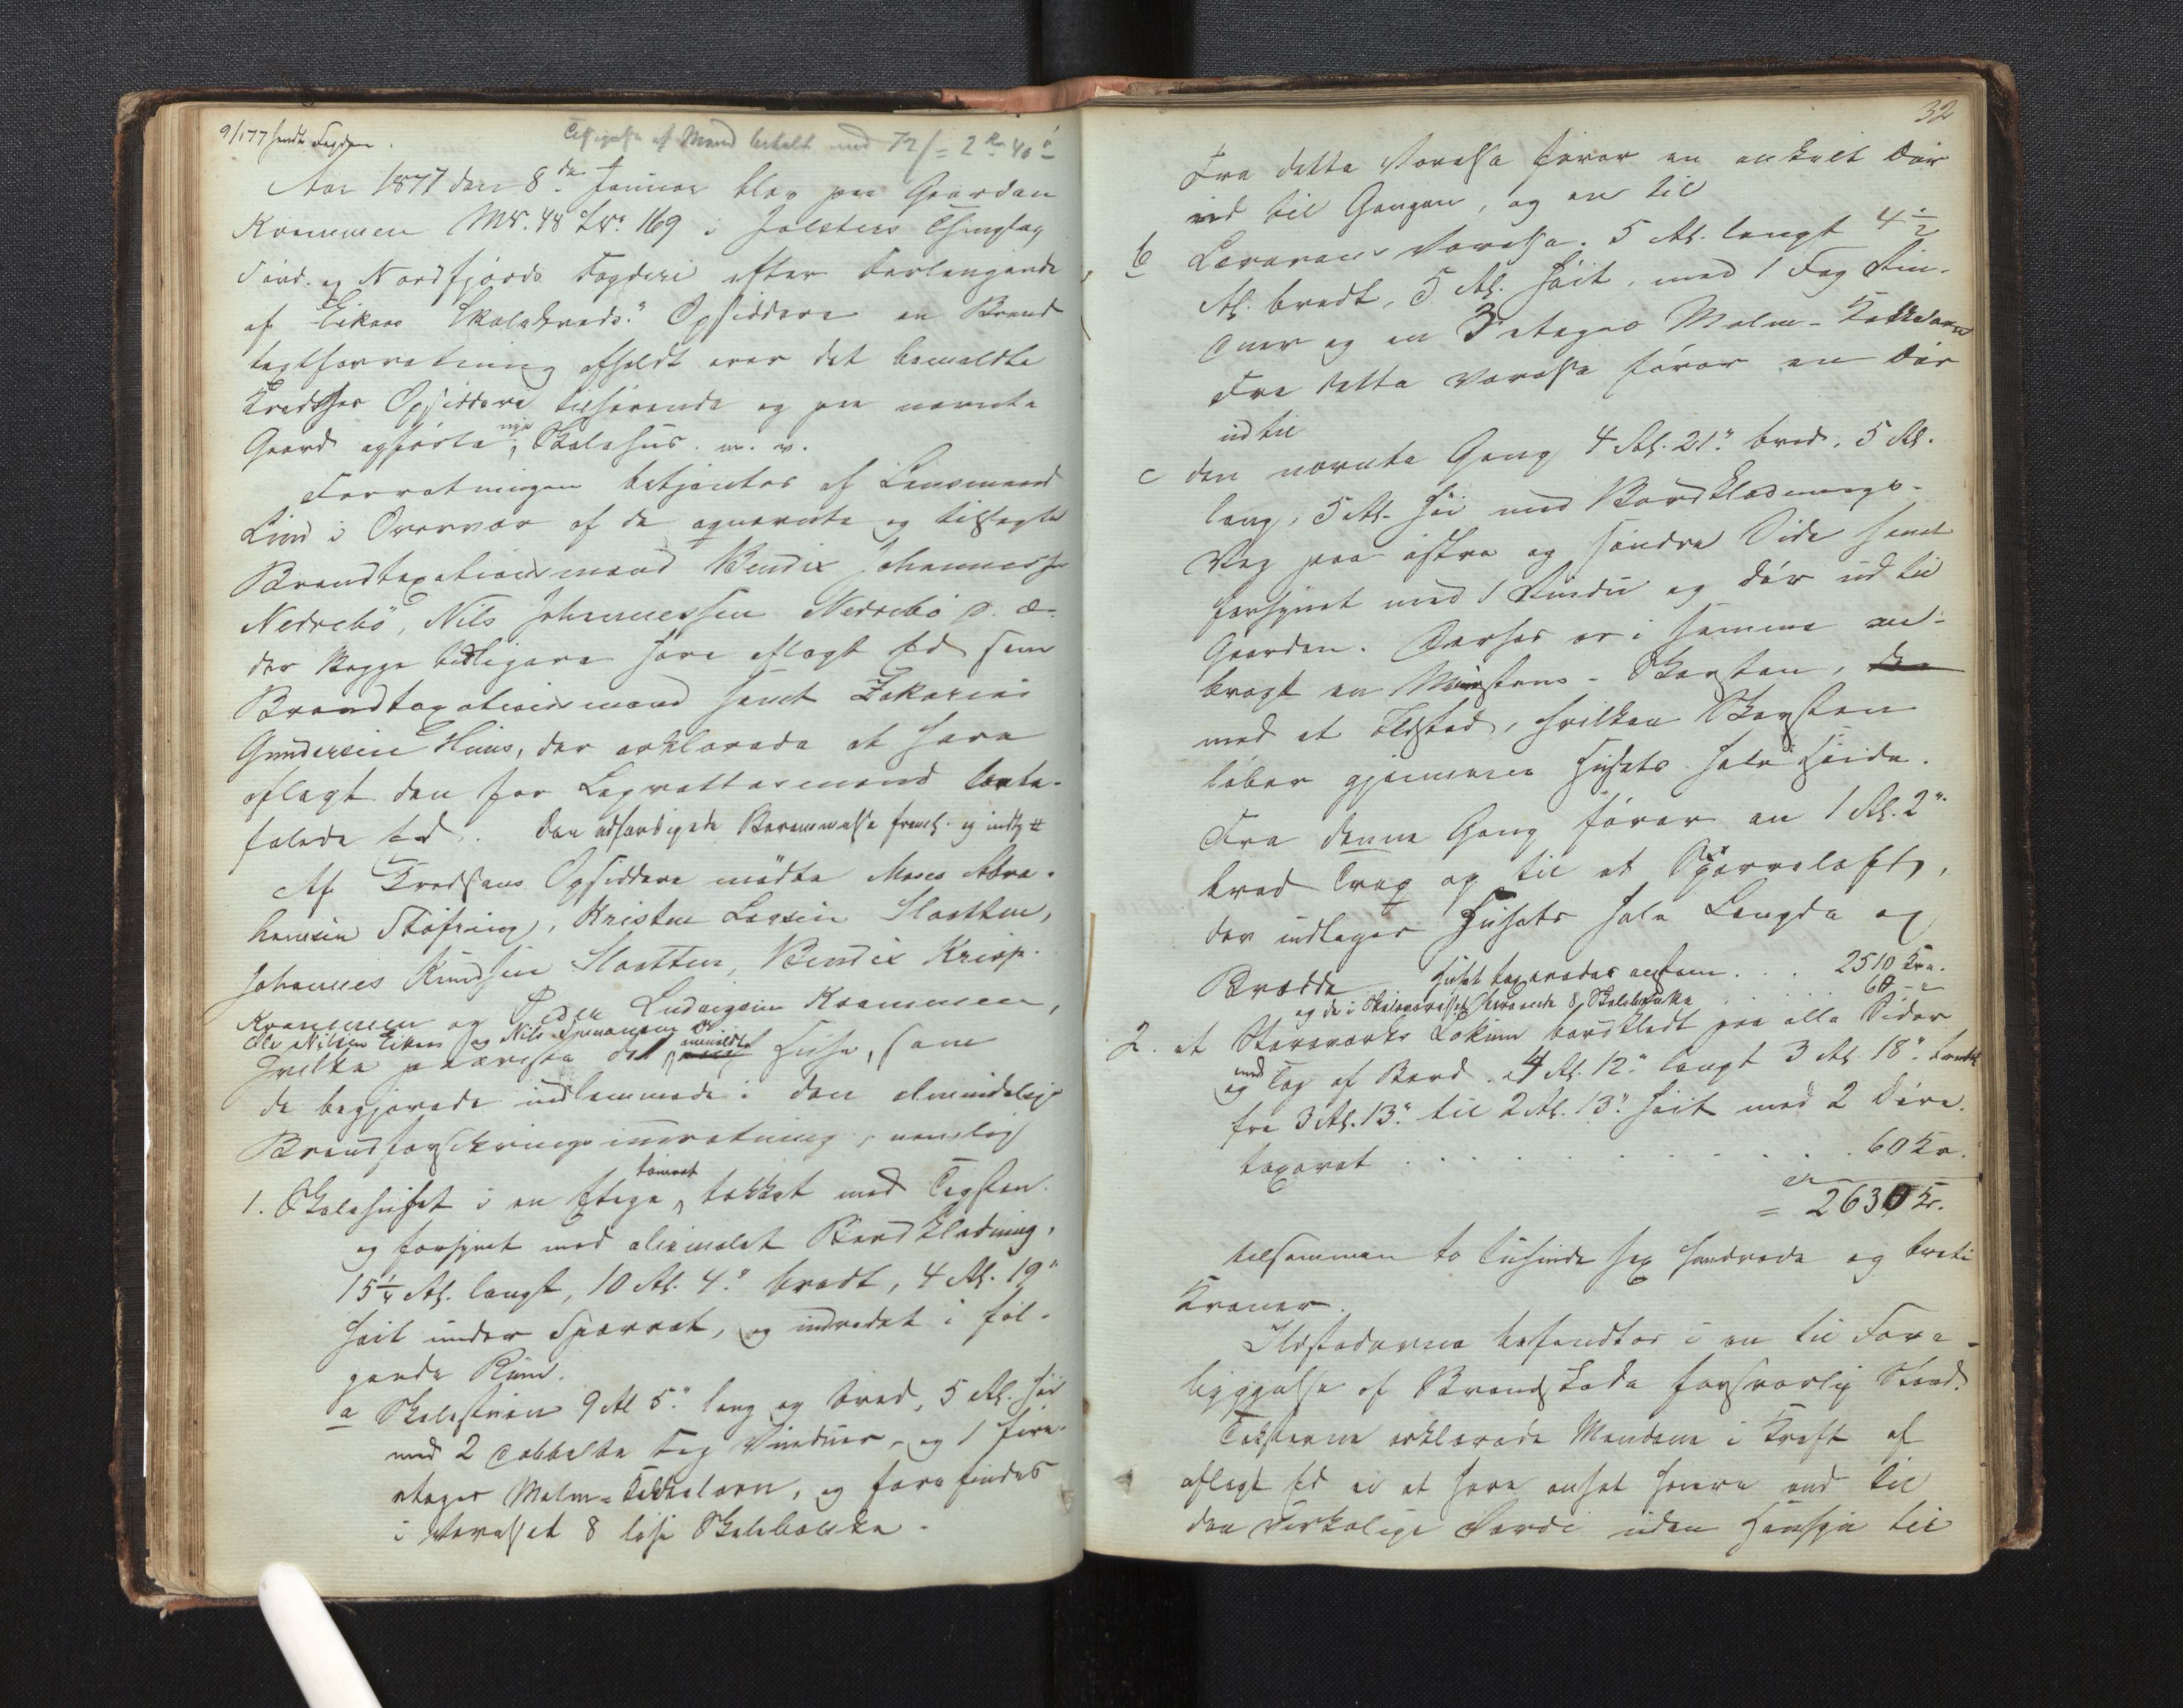 9/1 77 sendt Fogden.
Tilsigelse af Mænd betalt med 72 s = 2 Kr 40 ø
Aar 1877 den 8de Januar blev paa Gaarden
Kvammen M.N. 48 L.N. 169 i Jølsters Thinglag
Sønd- og Nordfjords Fogderi efter Forlangende
af Eikaas Skolekreds's Opsiddere en Brand-
taxtforretning afholdt over det bemeldte
Kredses Opsiddere tilhørende og paa nævnte
Gaard opførte nye Skolehus m. v.
Forretningen betjentes af Lensmand
Lind i Overvær af de opnævnte og tilsagte
Brandtaxationsmænd Bendix Johannessen
Nedrebö, Nils Johannessen Nedrebö p. æ.
der begge tidligere have aflagt Ed som
Brandtaxationsmænd samt Zakarias
Gundersen Huus, der erklærede at have
aflagt den for Lagrettesmænd befa-
falede Ed. Den udfærdigede Berammelse freml. og indtg #
Af Kredsens Opsiddere mødte Moses Abra-
hamsen Støfring, Kristen Larsen Slaatten,
Johannes Knudsen Slaatten, Bendix Krisp.
Kvammen og Peder Ludvigsen Kvammen,
Ole Nilsen Eikaas og Nils Simonsen
hvilke paaviste de anmeldte Huse, som
de begjærede indlemmede i den almindelige
Brandforsikringsindretning, nemlig
1. Skolehuset i en Etage, tømret tækket med Tagsten
og forsynet med oliemalet Bordklædning,
15 1/4 Al. langt, 10 Al. 4" bredt, 4 Al. 19"
høit under Sparret, og indredet i føl-
gende Rum.
a Skolestuen 9 Al 5" lang og bred, 5 Al. høi
med 2 dobbelte Fag Vinduer, og 1 fire-
etages Malm-Kakkelovn, og forefindes
i Værelset 8 løse Skolebænke.
32
Fra dette Værelse fører en enkelt Dør
ud til Gangen, og en til
b Lærerens Værelse. 5 Al. langt 4 1/2
Al. bredt, 5 Al. høit, med 1 Fag Vin-
duer og en 3 etages Malm-Kakkelovn
Fra dette Værelse fører en Dør
ud til
c den nævnte Gang 4 Al. 21" bred, 5 Al.
lang, 5 Al. høi med Bordklædnings-
Væg paa østre og søndre Side samt
forsynet med 1 Vindu og Dør ud til
Gaarden. Derhos er i samme an-
bragt en Murstens-Skorsten, den
med et Ildsted, hvilken Skorsten
løber gjennem Husets hele Høide.
Fra denne Gang fører en 1 Al. 2"
bred Trap op til et Sparreloft,
der indtager Husets hele Længde og
Brædde. Huset taxeredes æstim . . . 2510 Kr.
og de i Skoleværelset værende 8 Skolebænke . . . 60 - "
2. et Staværks Lokum bordklædt paa alle Sider
og med Tag af Bord. 4 Al. 12" langt 3 Al. 18" bredt
fra 3 Al. 13" til 2 Al. 13" høit med 2 Døre.
taxeret . . . . . . . . 60 Kr.
= 2630 Kr.
tilsammen to Tusinde sex Hundrede og treti
Kroner.
Ildstederne befandtes i en til Fore-
byggelse af Brandskade forsvarlig Stand.
Taksterne erklærede Mændene i Kraft af
aflagt Ed ei at have ansat høiere end til
den virkelige Værdi uden Hensyn til